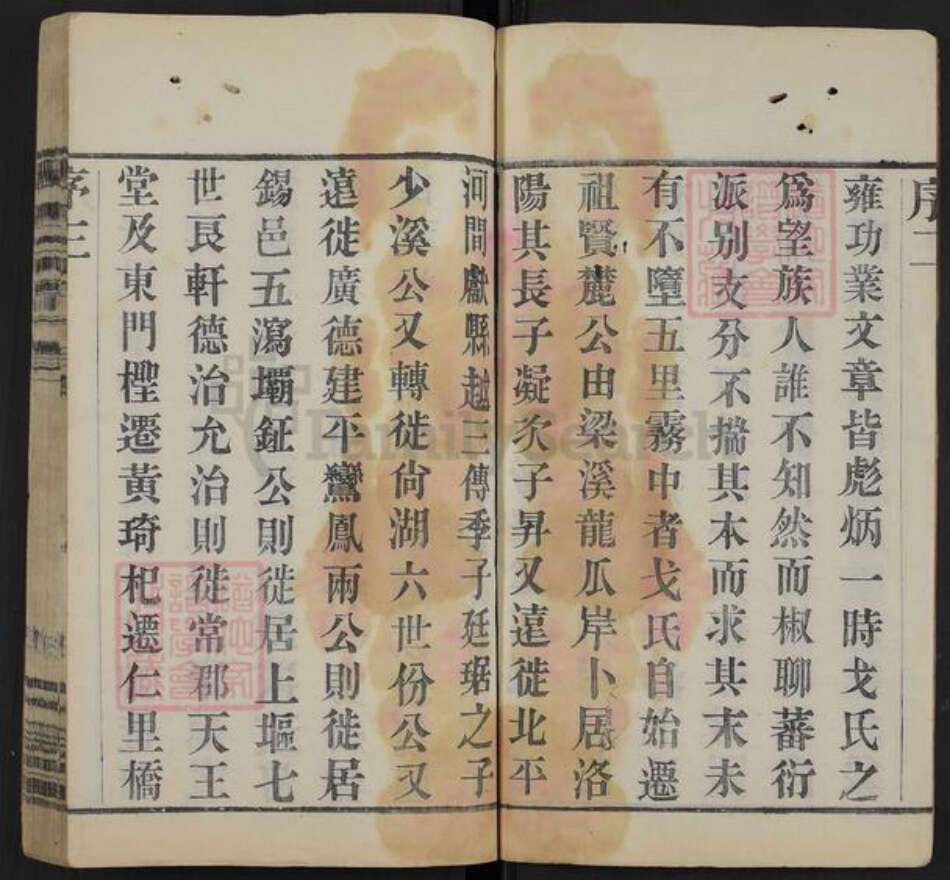 序二
雍功業文章皆彪炳一時戈氏之
爲望族人誰不知然而椒聊蕃衍
派别支分不揣其本而求其末未
有不墮五里霧中者戈氏自始遷
祖賢麓公由梁溪龍瓜岸卜居洛
陽其長子凝次子昇又遠徙北平
河間獻縣越三傳季子廷琚之子
少溪公又轉徙尙湖六世份公又
遠徙廣德建平鸞鳳兩公則徙居
錫邑五瀉壩鉦公則徙居上塸七
世艮軒德治允治則徙常郡天王
堂及東門檉遷黄琦杞遷仁里橋
序三
FamilySearch